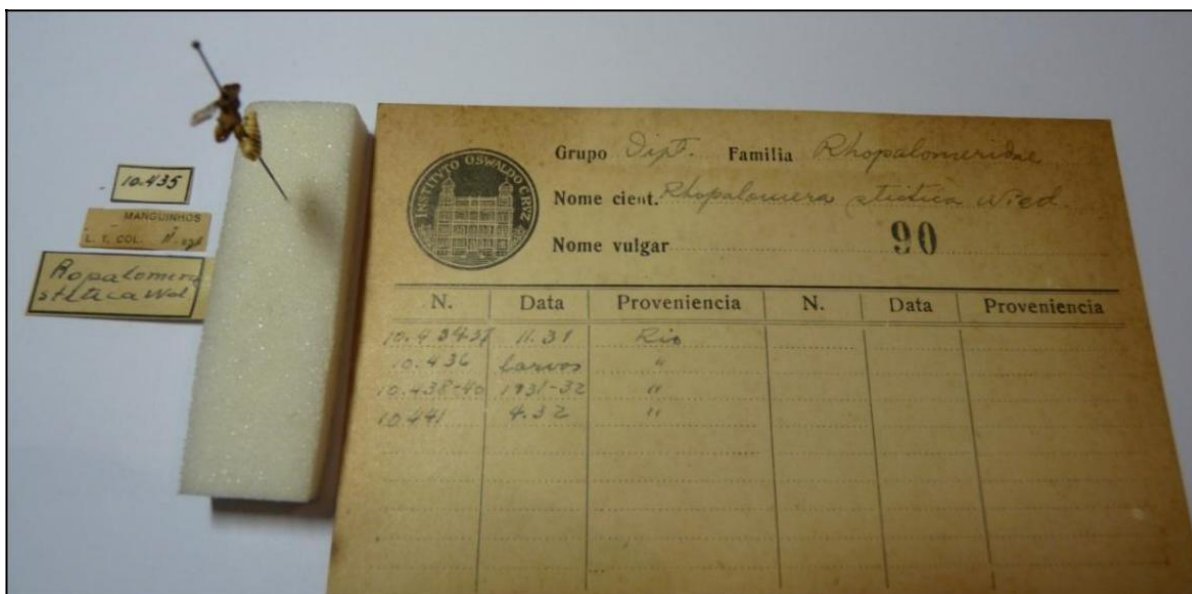 10.435
MANGUINHOS
L. T. COL.
Ropalomera
stitica Wd
INSTITVTO OSWALDO CRVZ
Grupo Dipt. Familia Rhopalomeridae
Nome cient. Rhopalomera stictica Wied.
Nome vulgar 90
N. Data Proveniencia N. Data Proveniencia
11.31 Rio
10.436 larvas "
10.438-40 1931-32 "
10.441 4.32 "